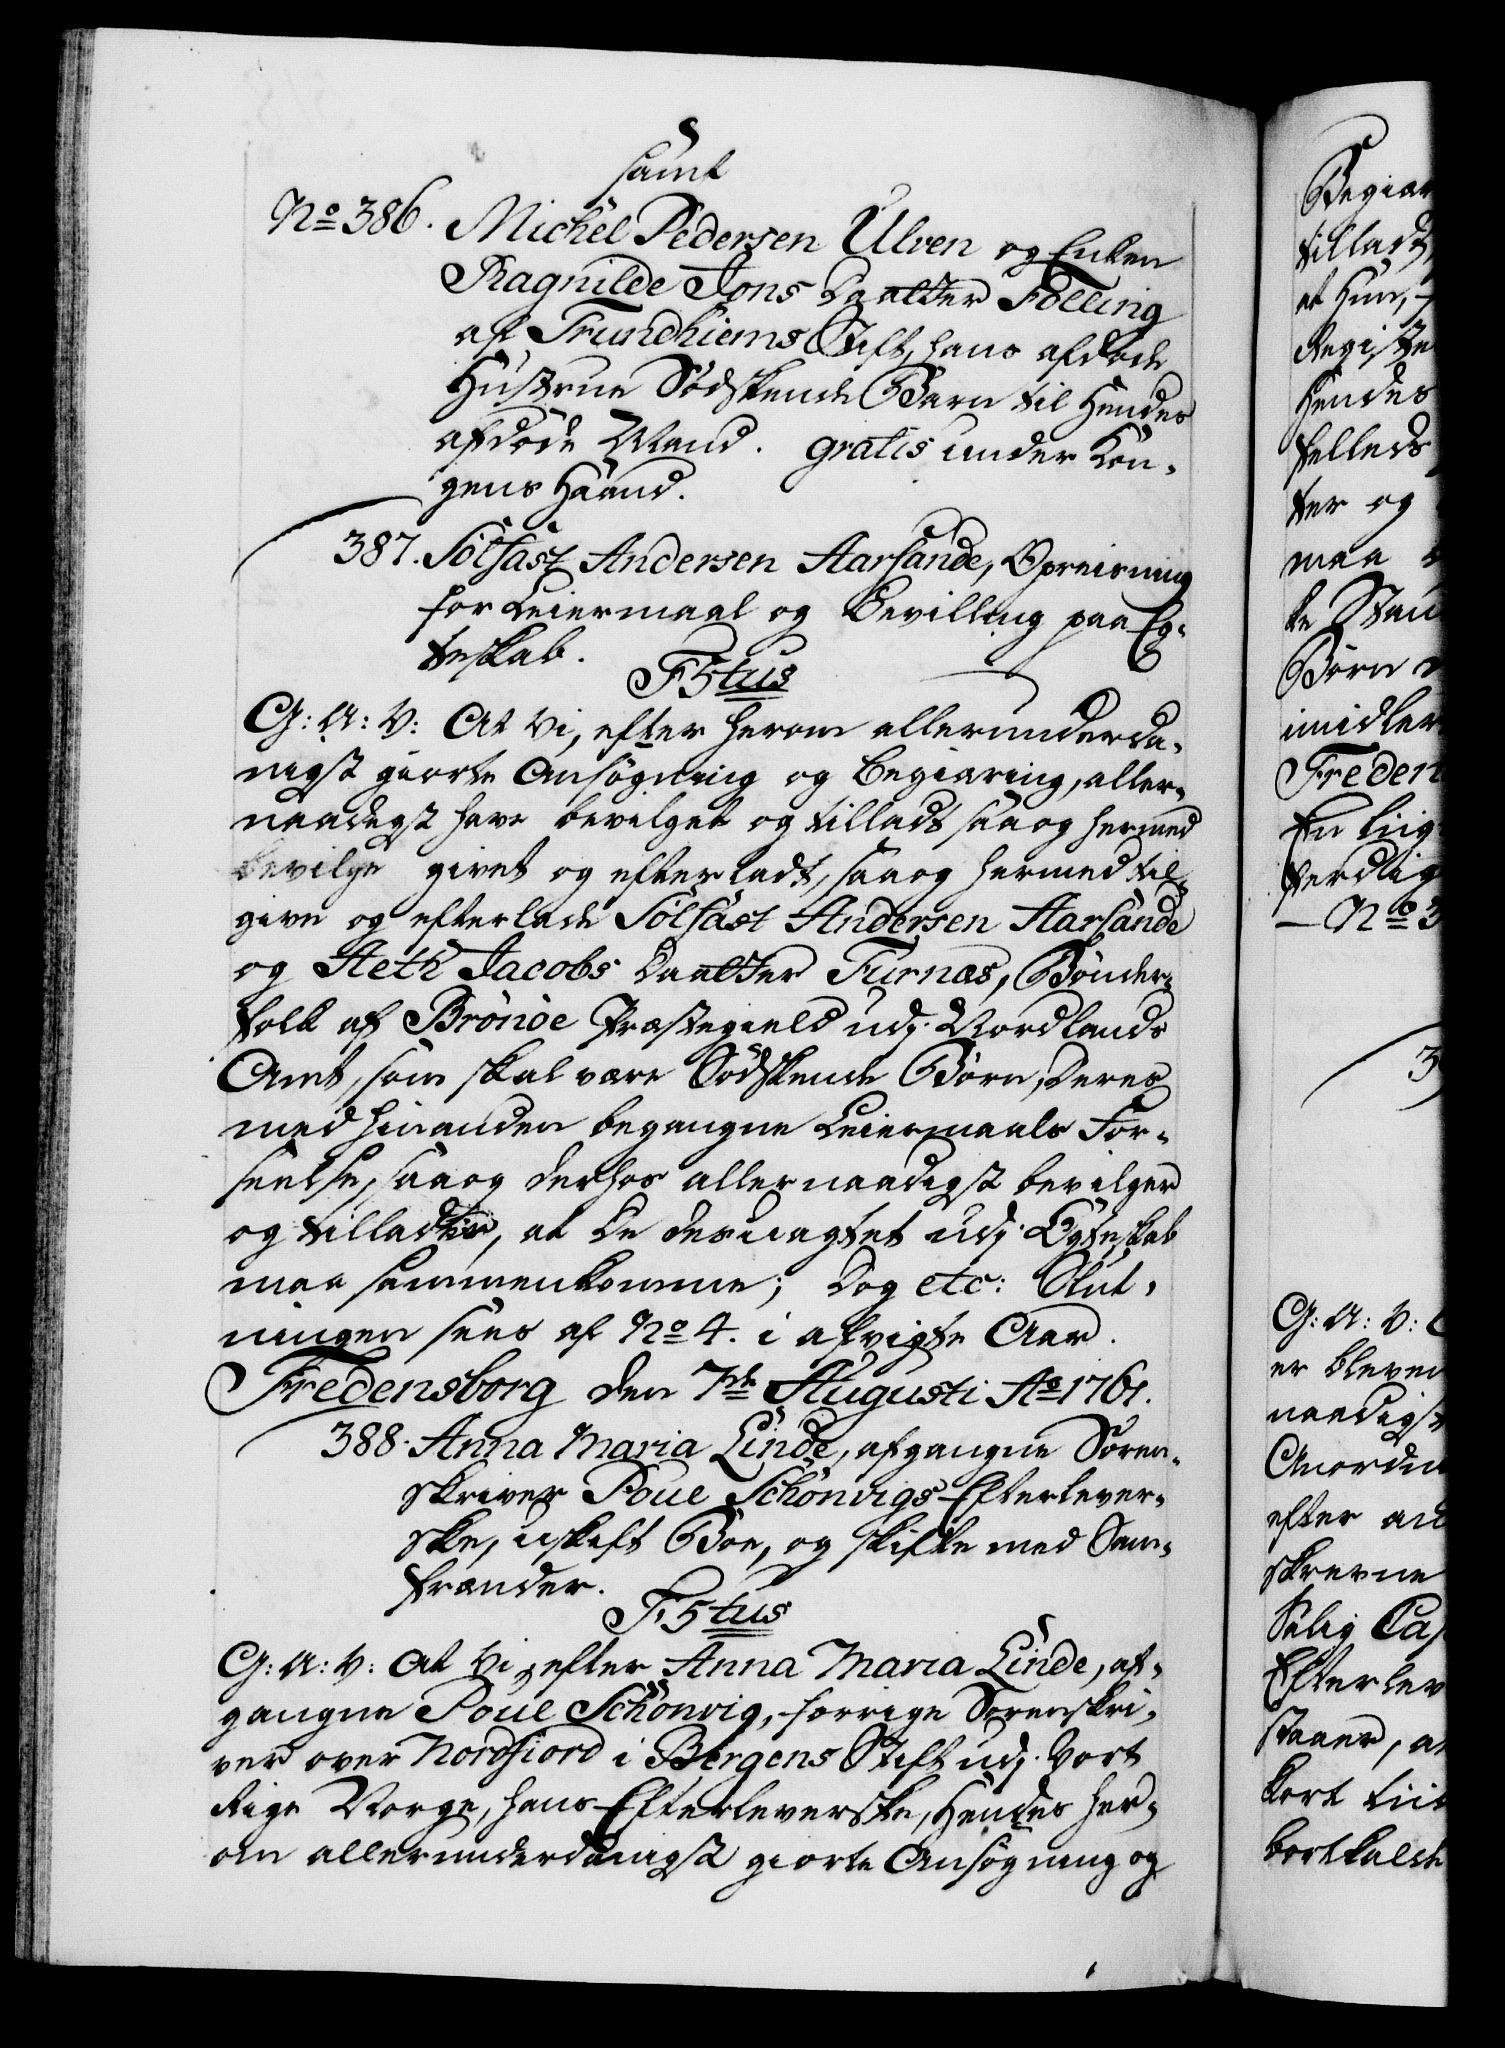 samt
No 386. Michel Pedersen Ulven og Enken
Ragnilde Jons Daatter Folling
af Trundhiems Stift, hans afdøde
Hustrue Sødskende Barn til Hendes
afdøde Mand. gratis under Kon-
gens Haand.
387. Solfast Andersen Aarsande, Opreisning
for Leiermaal og Bevilling paa Eg-
teskab.
F 5tus
G: A: V: At Vi, efter herom allerundersda-
nigst giorte Ansøgning og Begiæring, aller-
naadigst have bevilget og tilladt saa og hermed
bevilge givet og efterladt, saa og hermed til-
give og efterlade Solfast Andersen Aarsande
og Aeth Jacobs Daatter Turnæs, Bønder-
folk af Brønöe Præstegield udj Nordlands
Amt, som skal være Sødskende Børn, Deres
med hinanden begangne Leiermaals For-
seelse, saa og derhos allernaadigst bevilger
og tillader, at De desuagtet udj Egteskab
maa sammenkomme; Dog etc: Slut-
ningen sees af No 4. i afvigte Aar.
Fredensborg den 7de Augusti Ao 1761.
388. Anna Maria Linde, afgangne Soren-
skriver Poul Schönvigs Efterlever-
ske, uskift Boe, og skifte med Sam-
frænder.
F. 5tus
G: A: V: At Vi, efter Anna Maria Linde, af-
gangne Poul Schönvig, forrige Sorenskri-
ver over Nordfiord i Bergens Stift udj Vort
Rige Norge, hans Efterleverske, Hendes her-
om allerunderdanigst giorte Ansøgning og
Begiær
tilladt
at Hun,
Registe
Hendes
felleds
ter og
maa
Børn
imidler
Freden
En liig
færdig
No 3
3
G: A: V:
er bleven
naadigst
Anordn
efter
skrevne
Salig Cap
Efterlev
kort tiid
bortkaldt